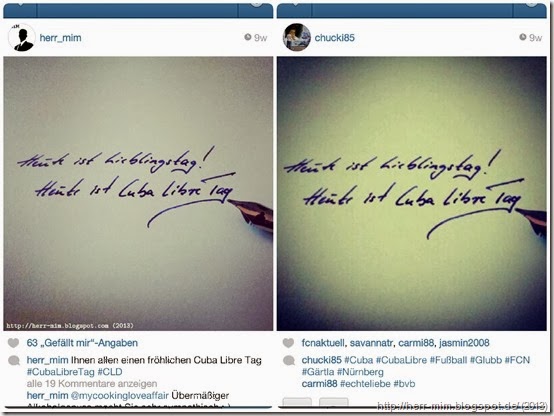 herr_mim
9w
Heute ist Lieblingstag!
Heute ist Cuba Libre Tag
http://herr-mim.blogspot.com (2013)
63 „Gefällt mir“-Angaben
herr_mim Ihnen allen einen fröhlichen Cuba Libre Tag
#CubaLibreTag #CLD
alle 19 Kommentare anzeigen
herr_mim @mycookingloveaffair Übermäßiger
chucki85
9w
Heute ist Lieblingstag!
Heute ist Cuba Libre Tag
fcnaktuell, savannatr, carmi88, jasmin2008
chucki85 #Cuba #CubaLibre #Fußball #Glubb #FCN
#Gärtla #Nürnberg
carmi88 #echteliebe #bvb
http://herr-mim.blogspot.de/ (2013)